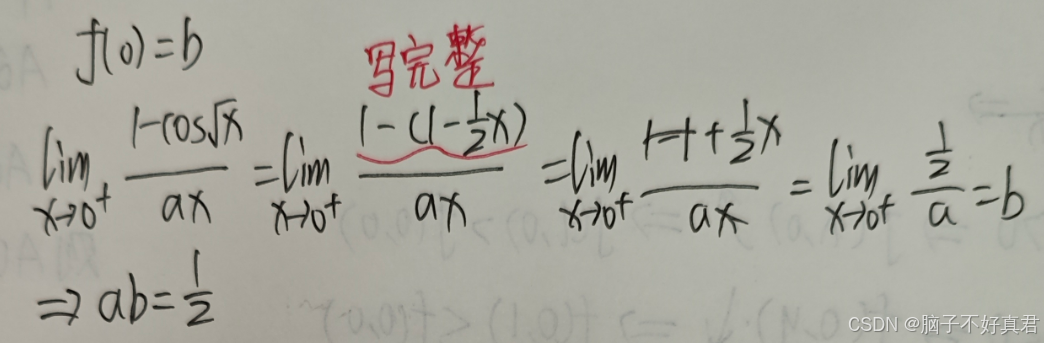 f(0)=b
写完整
lim x→0⁺ (1-cos√x)/(ax) = lim x→0⁺ (1-(1-½x))/(ax) = lim x→0⁺ (1-1+½x)/(ax) = lim x→0⁺ ½/a = b
⇒ ab=½
CSDN @脑子不好真君